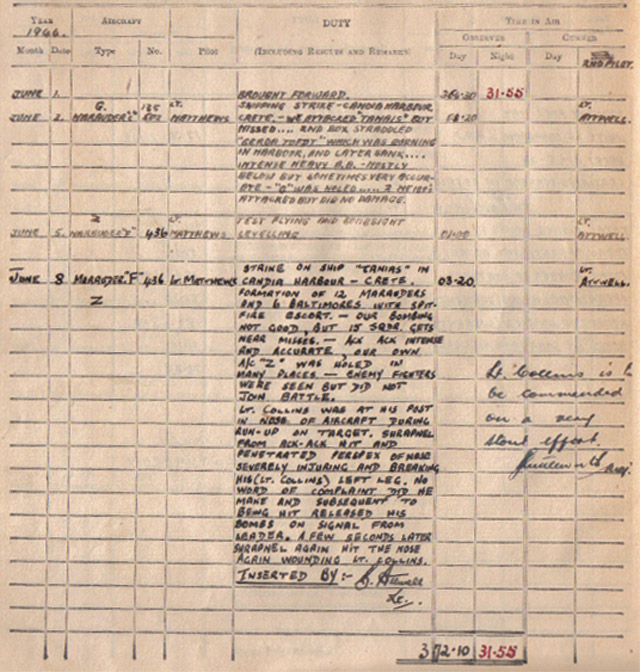 YEAR AIRCRAFT DUTY TIME IN AIR
1944.
OBSERVER
Month Date Type No. Pilot (INCLUDING RESULTS AND REMARKS) Day Night Day
2ND PILOT.
JUNE 1. BROUGHT FORWARD. 31-55
G. LT. SHIPPING STRIKE - CANDIA HARBOUR, LT.
JUNE 2. MARAUDER "E" MATTHEWS CRETE. - WE ATTACKED "TANAIS" BUT ATTWELL.
MISSED.... 2ND BOX STRADDLED
WHICH WAS BURNING
IN HARBOUR, AND LATER SANK....
INTENSE HEAVY A.A. - MOSTLY
BELOW BUT SOMETIMES VERY ACCUR-
ATE - "G" WAS HOLED....
ATTACKED BUT DID NO DAMAGE.
Z LT. TEST FLYING AND BORESIGHT LT.
JUNE 5. MARAUDER "F" 436 MATTHEWS LEVELLING ATTWELL
STRIKE ON SHIP "TANIAS" IN LT.
JUNE 8 MARAUDER "F" 436 LT. MATTHEWS CANDIA HARBOUR - CRETE. 03-20. ATTWELL.
Z FORMATION OF 12 MARAUDERS
AND 6 BALTIMORES WITH SPIT-
FIRE ESCORT. - OUR BOMBING
NOT GOOD, BUT 15 SQDR. GETS
NEAR MISSES. - ACK ACK INTENSE
AND ACCURATE, OUR OWN
A/C "Z" WAS HOLED IN
MANY PLACES. - ENEMY FIGHTERS
WERE SEEN BUT DID NOT
JOIN BATTLE.
LT. COLLINS WAS AT HIS POST
IN NOSE OF AIRCRAFT DURING
RUN-UP ON TARGET. SHRAPNEL
FROM ACK-ACK HIT AND
PENETRATED PERSPEX OF NOSE
SEVERELY INJURING AND BREAKING
HIS (LT. COLLINS) LEFT LEG. NO
WORD OF COMPLAINT DID HE
MAKE AND SUBSEQUENT TO
BEING HIT RELEASED HIS
BOMBS ON SIGNAL FROM
LEADER. A FEW SECONDS LATER
SHRAPNEL AGAIN HIT THE NOSE
AGAIN WOUNDING LT. COLLINS.
INSERTED BY:- Attwell
Lt.
Lt. Collins is to
be commended
on a very
stout effort.
372-10 31-55